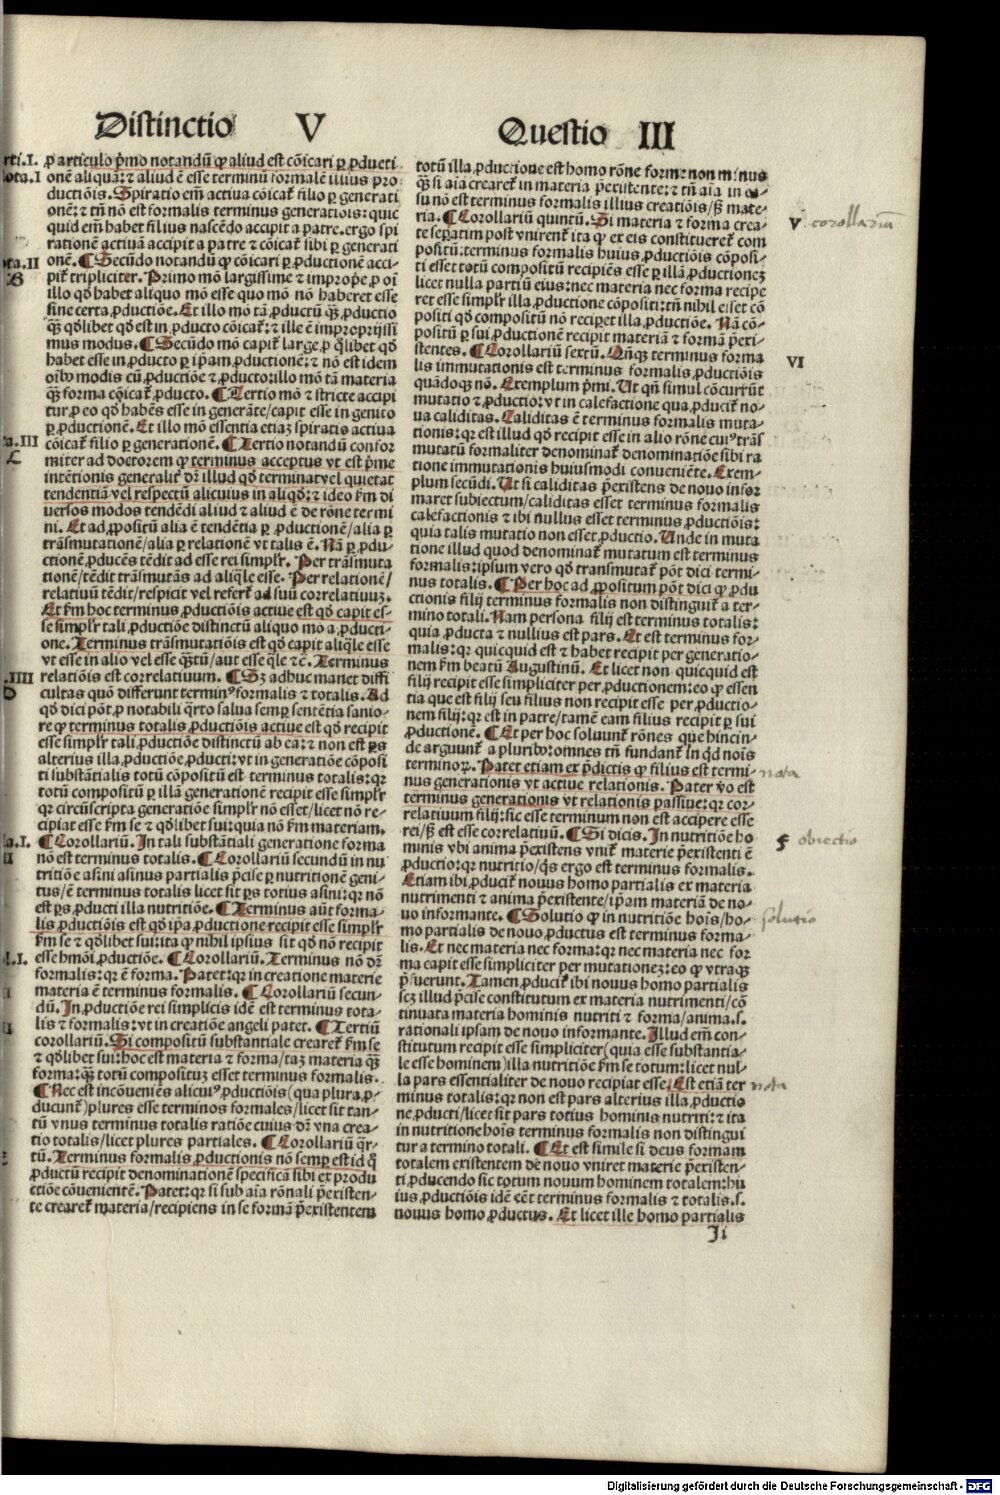 Distinctio V
Questio III
rti.I.
ota.I
ota.II
B
ta.III
L
.IIII
D
la.I.
II
l.I.
II
II
ꝑ articulo p̄mo notandū ꝙ aliud est cōicari ꝑ ꝓducti
onē aliquā: ⁊ aliud ē esse terminū formalē illius pro-
ductiōis. Spiratio em̄ actiua cōicat̄ filio ꝑ generati
onē: ⁊ tn̄ nō est formalis terminus generatiōis: quic
quid em̄ habet filius nascēdo accipit a patre. ergo spi
rationē actiuā accipit a patre ⁊ cōicat̄ sibi ꝑ generati
onē. ¶ Secūdo notandū ꝙ cōicari ꝑ ꝓductionē acci-
pit̄ tripliciter. Primo mō largissime ⁊ improprie ꝓ oī
illo qd̄ habet aliquo mō esse quo mō nō haberet esse
sine certa ꝓductiōe. Et illo mō tā ꝓductū q̄ꝫ ꝓductio
q̄ꝫ qd̄libet qd̄ est in ꝓducto cōicat̄: ⁊ ille ē impropriissi
mus modus. ¶ Secūdo mō capit̄ large ꝓ q̄libet qd̄
habet esse in ꝓducto ꝑ ip̄am ꝓductionē: ⁊ nō est idem
oībꝰ modis cū ꝓductiōe ⁊ ꝓducto: illo mō tā materia
q̄ꝫ forma cōicat̄ ꝓducto. ¶ Tertio mō ⁊ stricte accipi
tur ꝓ eo qd̄ habēs esse in generāte/capit esse in genito
ꝑ ꝓductionē. Et illo mō essentia etiaꝫ spiratis actiua
cōicat̄ filio ꝑ generationē. ¶ Tertio notandū confor
miter ad doctorem ꝙ terminus acceptus vt est p̄me
intētionis generalit̄ dr̄ illud qd̄ terminat vel quietat
tendentiā vel respectū alicuius in aliqd̄: ⁊ ideo ẜm di
uersos modos tendēdi aliud ⁊ aliud ē de rōne termi
ni. Et ad ꝓpositū alia ē tendētia ꝑ ꝓductionē/alia ꝑ
trāsmutationē/alia ꝑ relationē vt talis ē. Nā ꝑ ꝓdu-
ctionē ꝓducēs tēdit ad esse rei simplr̄. Per trāsmuta
tionē/tēdit trāsmutās ad aliq̄le esse. Per relationē/
relatiuū tēdit/respicit vel refert̄ ad suū correlatiuuꝫ.
Et ẜm hoc terminus ꝓductiōis actiue est qd̄ capit es-
se simplr̄ tali ꝓductiōe distinctū aliquo mō a ꝓducti-
one. Terminus trāsmutatiōis est qd̄ capit aliq̄le esse
vt esse in alio vel esse q̄ꝫtū/aut esse q̄le ⁊ċ. Terminus
relatiōis est correlatiuum. ¶ Sꝫ adhuc manet diffi
cultas quō differunt terminꝰ formalis ⁊ totalis. Ad
qd̄ dici pōt ꝓ notabili q̄rto salua semꝑ sentētia sanio-
re ꝙ terminus totalis ꝓductiōis actiue est qd̄ recipit
esse simplr̄ tali ꝓductiōe distinctū ab ea: ⁊ non est ꝑs
alterius illa ꝓductiōe ꝓducti: vt in generatiōe cōposi
ti substātialis totū cōpositū est terminus totalis: qꝛ
totū compositū ꝑ illā generationē recipit esse simplr̄
qꝛ circūscripta generatiōe simplr̄ nō esset/licet nō re-
cipiat esse ẜm se ⁊ qd̄libet sui: quia nō ẜm materiam.
¶ Corollariū. In tali substātiali generatione forma
nō est terminus totalis. ¶ Corollariū secundū in nu
tritiōe asini asinus partialis p̄cise ꝑ nutritionē geni-
tus/ē terminus totalis licet sit ꝑs totius asini: qꝛ nō
est ꝑs ꝓducti illa nutritiōe. ¶ Terminus aūt forma-
lis ꝓductiōis est qd̄ ip̄a ꝓductione recipit esse simplr̄
ẜm se ⁊ qd̄libet sui: ita ꝙ nihil ipsius sit qd̄ nō recipit
esse hmōi ꝓductiōe. ¶ Corollariū. Terminus nō dr̄
formalis: qꝛ ē forma. Patet: qꝛ in creatione materie
materia ē terminus formalis. ¶ Corollariū secun-
dū. In ꝓductiōe rei simplicis idē est terminus tota-
lis ⁊ formalis: vt in creatiōe angeli patet. ¶ Tertiū
corollariū. Si compositū substantiale crearet̄ ẜm se
⁊ qd̄libet sui: hoc est materia ⁊ forma/taꝫ materia q̄ꝫ
forma: q̄ꝫ totū compositū esset terminus formalis.
¶ Nec est incōueniēs alicuiꝰ ꝓductiōis (qua plura ꝓ-
ducunt̄) plures esse terminos formales/licet sit tan-
tū vnus terminus totalis ratiōe cuius dr̄ vna crea-
tio totalis/licet plures partiales. ¶ Corollariū q̄r-
tū. Terminus formalis ꝓductionis nō semꝑ est id q̄
ꝓductū recipit denominationē specificā sibi ex produ
ctiōe cōuenientē. Patet: qꝛ si sub aīa rōnali p̄existen-
te crearet̄ materia/recipiens in se formā p̄existentem
totū illa ꝓductione est homo rōne forme non minus
q̄ꝫ si aīa crearet̄ in materia p̄existente: ⁊ tn̄ aīa in ca-
su nō est terminus formalis illius creatiōis/ꝫ mate-
ria. ¶ Corollariū quintū. Si materia ⁊ forma crea-
te seꝑatim post vnirent̄ ita ꝙ ex eis constitueret̄ com
positū: terminus formalis huius ꝓductiōis cōposi-
ti esset totū compositū recipiēs esse ꝑ illā ꝓductioneꝫ
licet nulla partiū eius: nec materia nec forma recipe
ret esse simplr̄ illa ꝓductione cōpositi: tn̄ nihil esset cō
positi qd̄ compositū non reciperet illa ꝓductiōe. Nā cō-
positū ꝑ sui ꝓductionē recipit materiā ⁊ formā p̄exi-
stentes. ¶ Corollariū sextū. Qn̄qꝫ terminus forma
lis immutationis est terminus formalis ꝓductiōis
quādoqꝫ nō. Exemplum p̄mi. Ut qn̄ simul cōcurrūt
mutatio ⁊ ꝓductio: vt in calefactione qua ꝓducit̄ no-
ua caliditas. Caliditas ē terminus formalis muta-
tionis: qꝛ est illud qd̄ recipit esse in alio rōne cuiꝰ trās
mutatū formaliter denominat̄ denominatiōe sibi ra
tione immutationis huiusmodi conueniēte. Exem-
plum secūdi. Ut si caliditas p̄existens de nouo infor
maret subiectum/caliditas esset terminus formalis
calefactionis ⁊ ibi nullus esset terminus ꝓductiōis:
quia talis mutatio non esset ꝓductio. Unde in muta
tione illud quod denominat̄ mutatum est terminus
formalis: ipsum vero qd̄ transmutat̄ pōt dici termi-
nus totalis. ¶ Per hoc ad ꝓpositum pōt dici ꝙ ꝓdu
ctionis filij terminus formalis non distinguit̄ a ter-
mino totali. Nam persona filij est terminus totalis:
quia ꝓducta ⁊ nullius est pars. Et est terminus for-
malis: qꝛ quicquid est ⁊ habet recipit per generatio-
nem ẜm beatū Augustinū. Et licet non quicquid est
filij recipit esse simpliciter per ꝓductionem: eo ꝙ essen
tia que est filij seu filius non recipit esse per ꝓductio-
nem filij: qꝛ est in patre/tamē eam filius recipit ꝑ sui
ꝓductionē. ¶ Et per hoc soluunt̄ rōnes que hincin-
de arguunt̄ a pluribꝰ: omnes tn̄ fundant̄ in qd nois
terminoꝝ. Patet etiam ex p̄dictis ꝙ filius est termi-
nus generationis vt actiue relationis. Pater vo est
terminus generationis vt relationis passiue: qꝛ cor-
relatiuum filij: sic esse terminum non est accipere esse
rei/ꝫ est esse correlatiuū. ¶ Si dicis. In nutritiōe ho
minis vbi anima p̄existens vnit̄ materie p̄existenti ē
ꝓductio: qꝛ nutritio/q̄s ergo est terminus formalis.
Etiam ibi ꝓducit̄ nouus homo partialis ex materia
nutrimenti ⁊ anima p̄existente/ip̄am materiā de no-
uo informante. ¶ Solutio ꝙ in nutritiōe hoīs/ho-
mo partialis de nouo ꝓductus est terminus forma-
lis. Et nec materia nec forma: qꝛ nec materia nec for
ma capit esse simpliciter per mutationeꝫ: eo ꝙ vtraqꝫ
p̄fuerunt. Tamen ꝓducit̄ ibi nouus homo partialis
scꝫ illud p̄cise constitutum ex materia nutrimenti/cō
tinuata materia hominis nutriti ⁊ forma/anima .s.
rationali ipsam de nouo informante. Illud em̄ con-
stitutum recipit esse simpliciter (quia esse substantia-
le esse hominem) illa nutritiōe ẜm se totum: licet nul-
la pars essentialiter de nouo recipiat esse. Est etiā ter
minus totalis: qꝛ non est pars alterius illa ꝓductio
ne ꝓducti/licet sit pars totius hominis nutriti: ⁊ ita
in nutritione hoīs terminus formalis non distingui
tur a termino totali. ¶ Et est simile si deus formam
totalem existentem de nouo vniret materie p̄existen-
ti ꝓducendo sic totum nouum hominem totalem: hu
ius ꝓductiōis idē eēt terminus formalis ⁊ totalis .s.
nouus homo ꝓductus. Et licet ille homo partialis
Ii
V corollarium
VI
nota
obiectio
solutio
nota
Digitalisierung gefördert durch die Deutsche Forschungsgemeinschaft - DFG